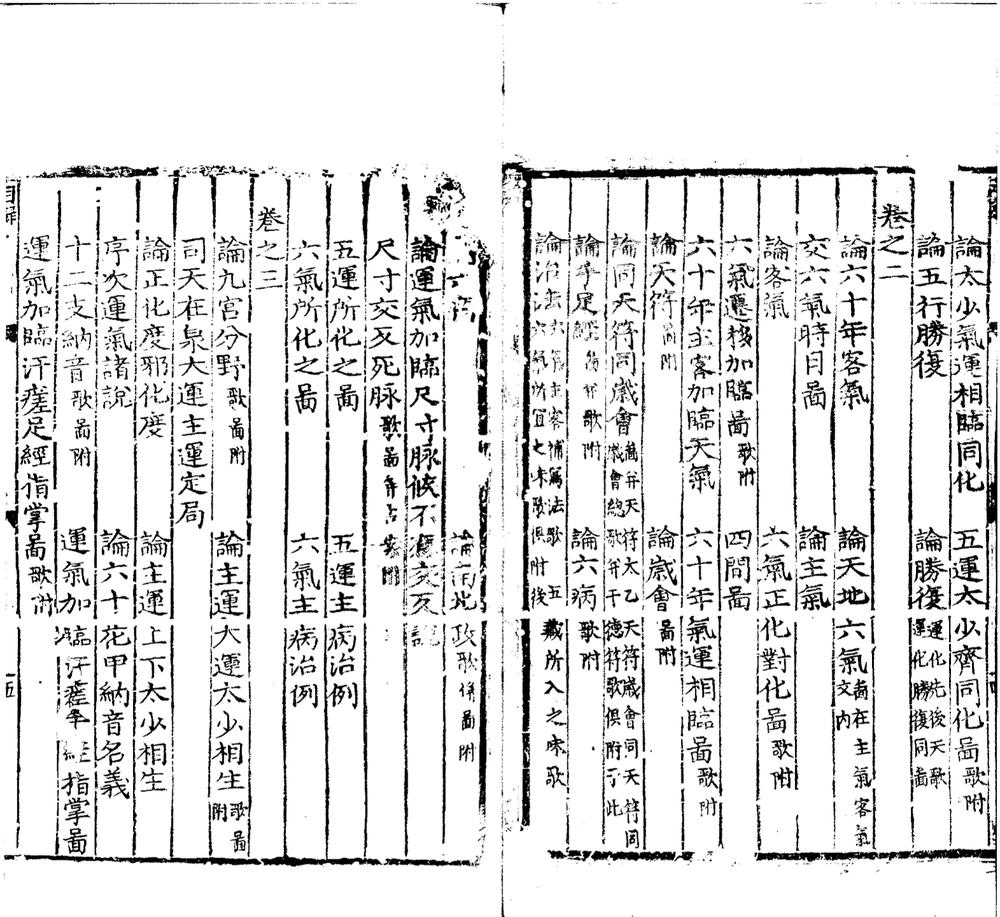 論太少氣運相臨同化 五運太少齊同化啚歌附
論五行勝復 論勝復運化先後天歌運化勝復同啚
卷之二
論六十年客氣 論天地六氣啚在主氣客氣文內
交六氣時日啚 論主氣
論客氣 六氣正化對化啚歌附
六氣遷移加臨啚歌附 四間啚
六十年主客加臨天氣 六十年氣運相臨啚歌附
論天符啚附 論歲會啚附
論同天符同歲會啚并天符太乙天符歲會同天符同歲會總歌并干德符歌俱附于此
論手足經歌附 論六病歌附
論治法六氣主客補瀉法歌 五六氣所宜之味歌俱附後 藏所入之味歌
論南北政歌併啚附
論運氣加臨尺寸脉候不應交反說
尺寸交反死脉歌啚并占附
五運所化之啚 五運主病治例
六氣所化之啚 六氣主病治例
卷之三
論九宮分野歌啚附 論主運大運太少相生歌啚附
司天在泉大運主運定局
論正化度邪化度 論主運上下太少相生
序次運氣諸說 論六十花甲納音名義
十二支納音歌啚附 運氣加臨汗瘥手經指掌啚
運氣加臨汗瘥足經指掌啚歌附
五